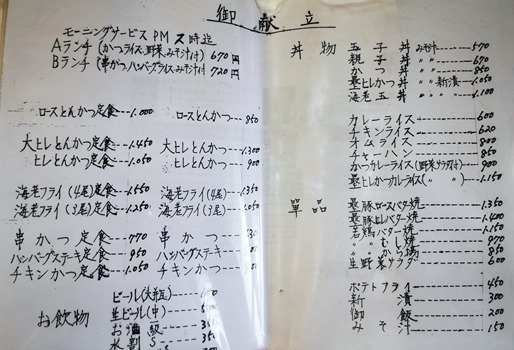 御献立
モーニングサービス PM 時迄
Aランチ (かつライス、野菜みそ汁付) 670円
Bランチ (串かつ、ハンバーグライス、みそ汁付) 720円
ロースとんかつ定食---1.000
ロースとんかつ----850
大ヒレとんかつ定食---1.450
大ヒレとんかつ---1.300
ヒレとんかつ定食---1.050
ヒレとんかつ---900
海老フライ(4尾)定食---1.550
海老フライ(4尾)---1.350
海老フライ(3尾)定食---1.250
海老フライ(3尾)---1.050
串かつ定食-----770
串かつ
ハンバーグステーキ定食---950
ハンバーグステーキ
チキンかつ定食---1.050
チキンかつ
お飲物
ビール(大瓶)
生ビール(中)
お酒
水割 S
丼物
玉子丼 みそ汁------570
親子丼 〃 〃------670
かつ丼 〃 〃------850
ヒレかつ丼 〃 〃 新漬---1.100
海老玉丼 〃 〃-----1.100
カレーライス----------600
チキンライス----------620
オムライス----------800
チャーハン----------850
かつカレーライス(野菜サラダ付)---900
ヒレかつカレーライス(〃 〃)---1.150
單品
豚ロースバター焼-------1.350
豚ヒレバター焼-------1.400
若鶏バター焼--------1.150
〃 むし焼---------970
〃 から揚---------850
生野菜サラダ---------600
ポテトフライ---------450
新漬---------300
御飯---------200
みそ汁---------150